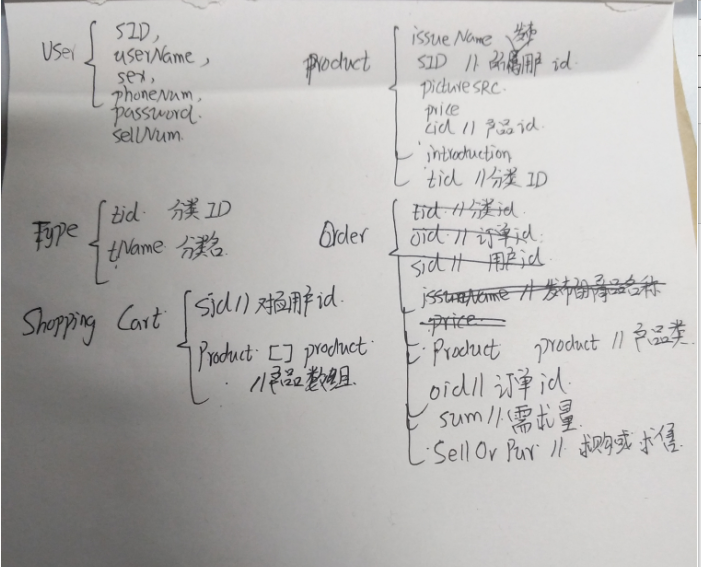 User
SID,
userName,
sex,
phoneNum,
password.
sellNum.
product
issueName 发布
SID // 所属用户id.
pictureSRC.
price
cid // 产品id.
introduction
tid //分类ID
Type
tid. 分类ID
tName 分类名.
Shopping Cart
sid // 对应用户id.
Product [] product.
//产品数组.
Order
tid //分类id.
oid // 订单id.
sid // 用户id
issueName // 发布的商品名称
price
Product product // 产品类.
oid // 订单id.
sum // 需求量.
SellOrPur // 求购或求售.